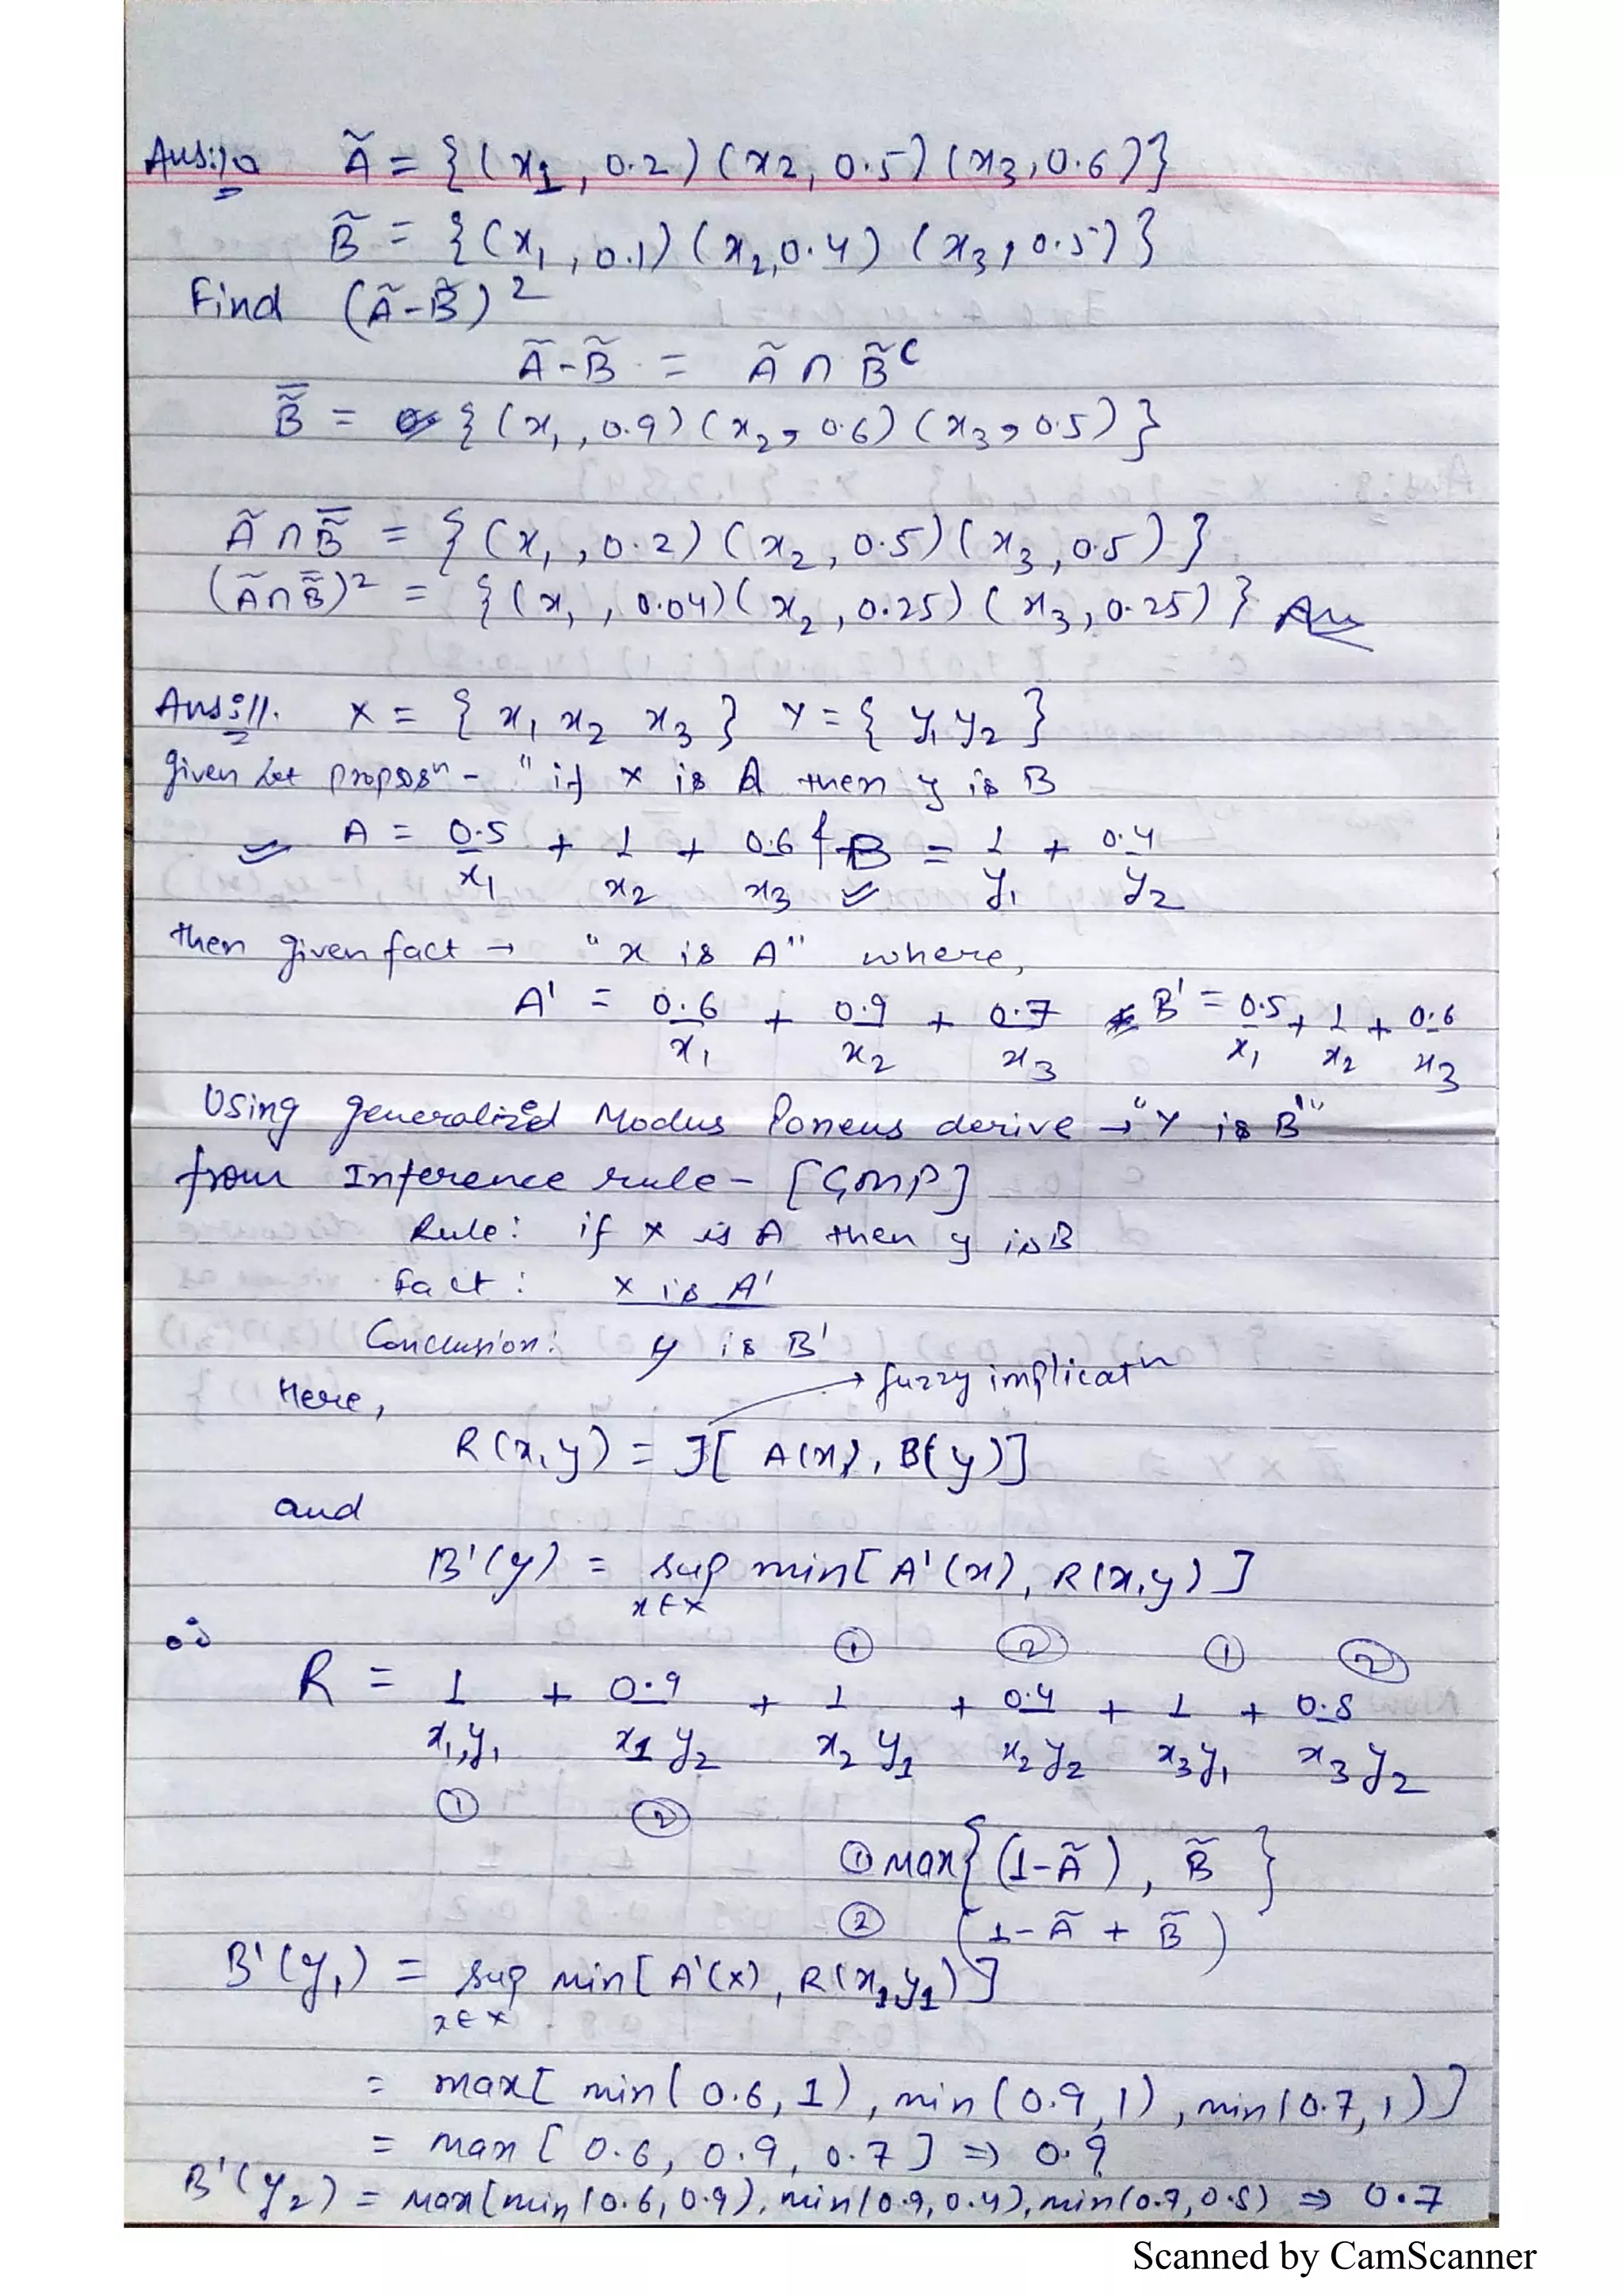 Ans:10 Ã = {(x1, 0.2) (x2, 0.5) (x3, 0.6)}
B̃ = {(x1, 0.1) (x2, 0.4) (x3, 0.5)}
Find (Ã-B̃)²
Ã-B̃ = Ã ∩ B̃ᶜ
B̃̿ = {(x1, 0.9) (x2, 0.6) (x3, 0.5)}
Ã ∩ B̃̿ = {(x1, 0.2) (x2, 0.5) (x3, 0.5)}
(Ã ∩ B̃̿)² = {(x1, 0.04) (x2, 0.25) (x3, 0.25)} Ans
Ans:11. X = {x1 x2 x3} Y = {y1 y2}
given let propos^n - "if x is A then y is B
A = 0.5/x1 + 1/x2 + 0.6/x3 & B = 1/y1 + 0.4/y2
then given fact → "x is A" where,
A' = 0.6/x1 + 0.9/x2 + 0.7/x3 & B' = 0.5/x1 + 1/x2 + 0.6/x3
Using generalized Modus Ponens derive → "Y is B'"
from Inference rule - [GMP]
Rule: if x is A then y is B
Fact: x is A'
Conclusion: y is B'
→ fuzzy implicat^n
Here,
R(x,y) = J[A(x), B(y)]
and
B'(y) = sup x∈X min[A'(x), R(x,y)]
① ② ① ②
R = 1/x1,y1 + 0.9/x1 y2 + 1/x2 y1 + 0.4/x2 y2 + 1/x3 y1 + 0.8/x3 y2
① ②
① Max{(1-Ã), B̃}
② (1-Ã + B̃)
B'(y1) = sup x∈X min[A'(x), R(x1,y1)]
= max[min(0.6, 1), min(0.9, 1), min(0.7, 1)]
= max[0.6, 0.9, 0.7] ⇒ 0.9
B'(y2) = max[min(0.6, 0.9), min(0.9, 0.4), min(0.7, 0.8) ⇒ 0.7
Scanned by CamScanner